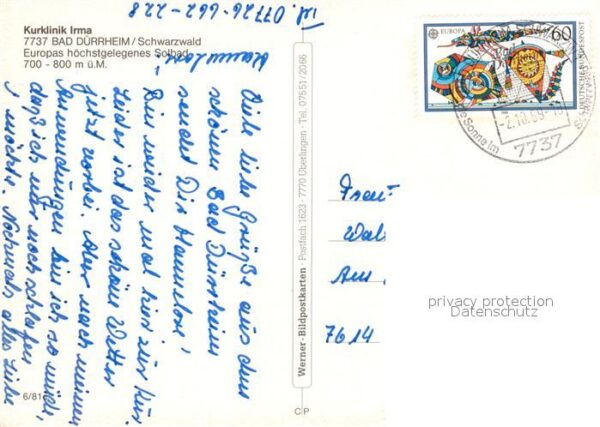 Kurklinik Irma
7737 BAD DÜRRHEIM / Schwarzwald
Europas höchstgelegenes Solbad
700 - 800 m ü.M.
Tel. 07726-662-228
Viele liebe Grüße aus dem
schönen Bad Dürrheim
sendet Dir Hannelore
Bin wieder mal hier zur Kur.
Leider ist das schöne Wetter
jetzt vorbei. Aber nach meinen
Anwendungen bin ich so müde,
daß ich nur noch schlafen
möchte. Nochmals alles Liebe
6/81
Werner-Bildpostkarten · Postfach 1623 · 7770 Überlingen · Tel. 07551/2066
C P
EUROPA
60
DEUTSCHE BUNDESPOST
-2.10.89-
Sonne im
7737
Frau
Am
7614
privacy protection
Datenschutz